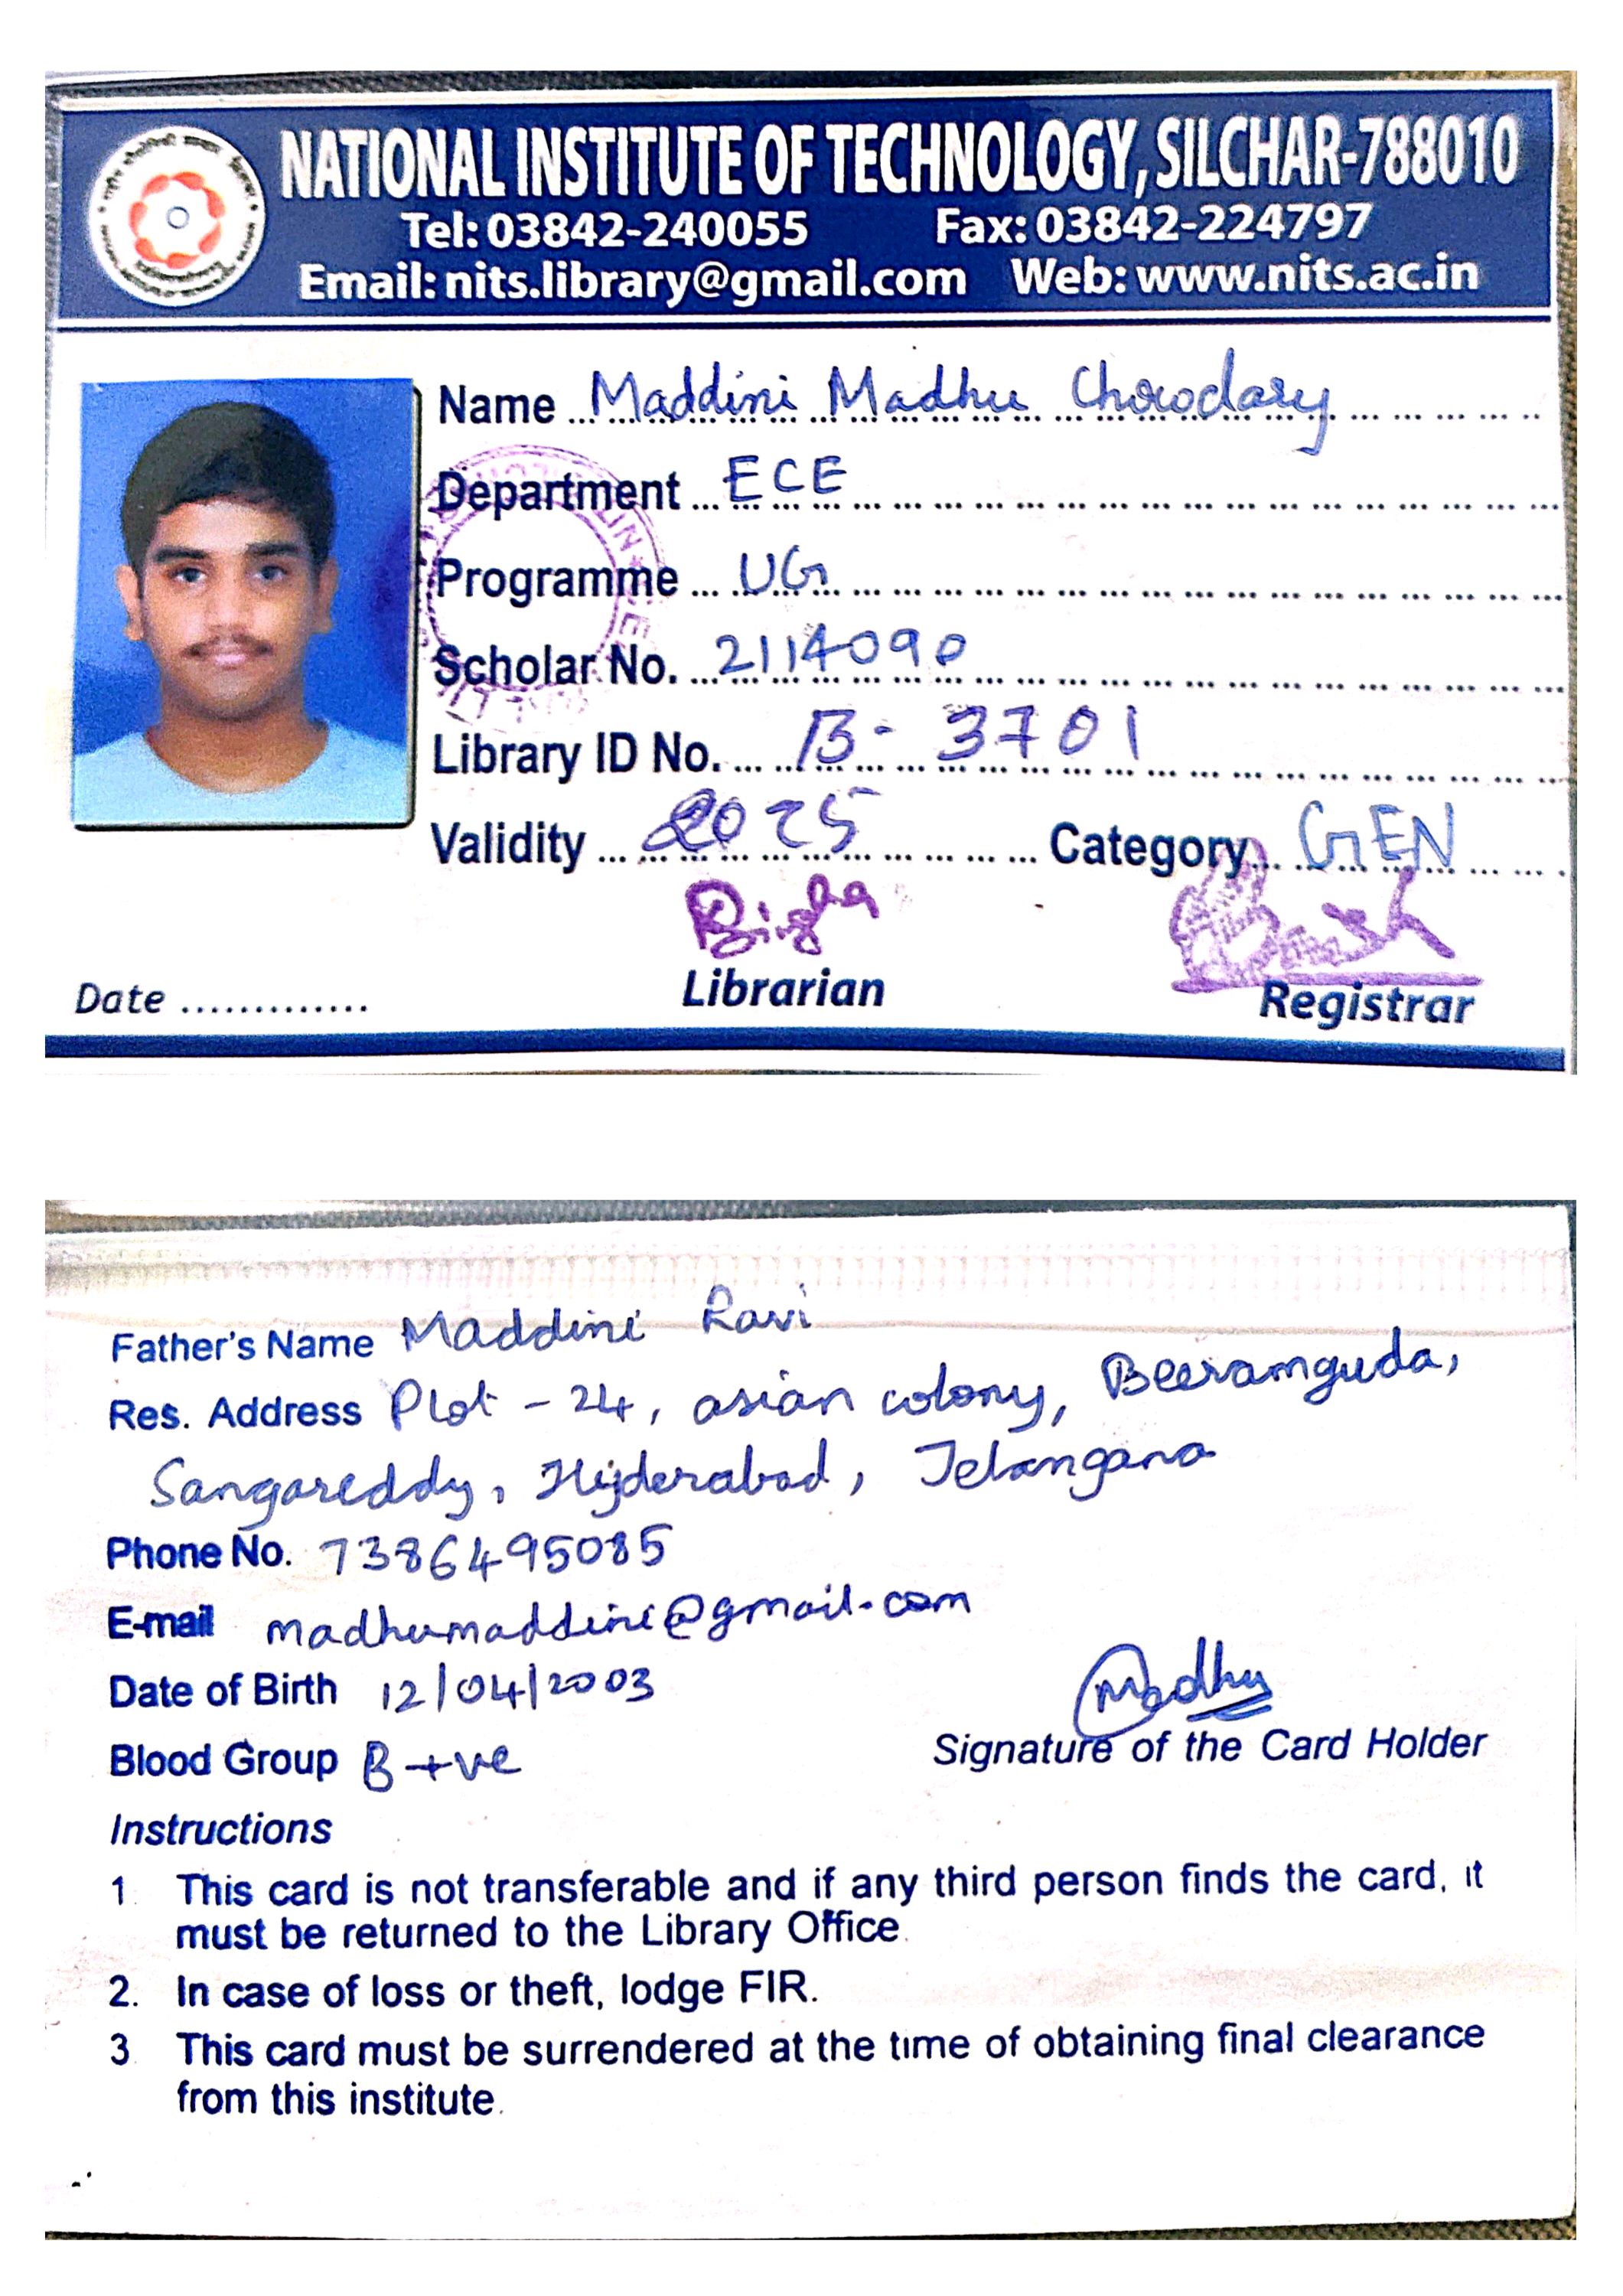 NATIONAL INSTITUTE OF TECHNOLOGY, SILCHAR-788010
Tel: 03842-240055 Fax: 03842-224797
Email: nits.library@gmail.com Web: www.nits.ac.in
Name Maddini Madhu Chowdary
Department ECE
Programme UG
Scholar No. 2114090
Library ID No. B- 3701
Validity 2025 Category GEN
Date ............. Librarian Registrar
Father's Name Maddini Ravi
Res. Address Plot - 24, asian colony, Beeramguda,
Sangareddy, Hyderabad, Telangana
Phone No. 7386495085
E-mail madhumaddini@gmail.com
Date of Birth 12/04/2003
Madhu
Blood Group B +ve
Signature of the Card Holder
Instructions
1. This card is not transferable and if any third person finds the card, it
must be returned to the Library Office.
2. In case of loss or theft, lodge FIR.
3. This card must be surrendered at the time of obtaining final clearance
from this institute.